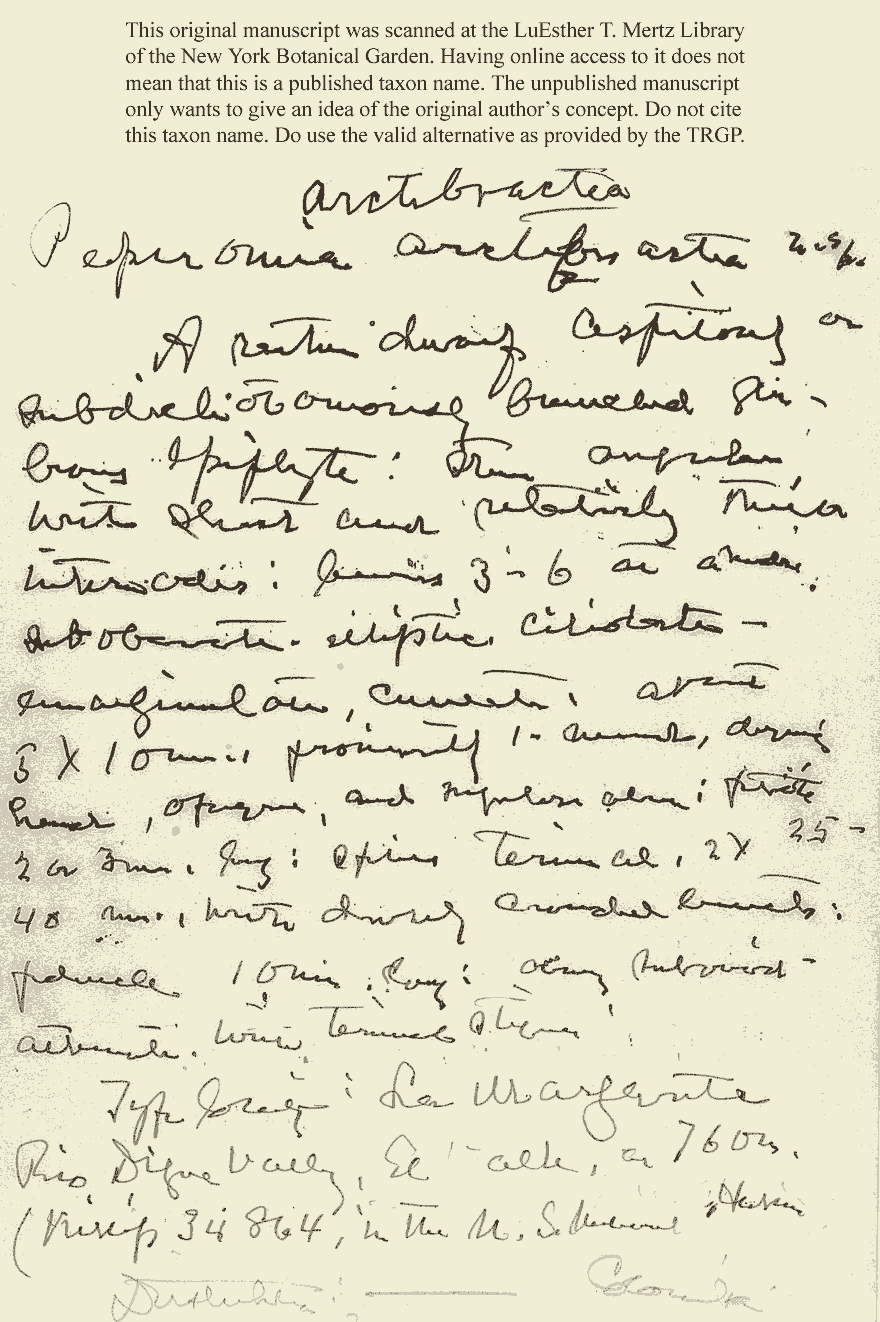 This original manuscript was scanned at the LuEsther T. Mertz Library
of the New York Botanical Garden. Having online access to it does not
mean that this is a published taxon name. The unpublished manuscript
only wants to give an idea of the original author's concept. Do not cite
this taxon name. Do use the valid alternative as provided by the TRGP.
arctibractea
Peperomia n. sp.
A rather dwarf cespitosely or
subdichotomously branched gla-
brous epiphyte: stem angular
with short and relatively thick
internodes: leaves 3-6 at a node,
subobovate-elliptic,
emarginulate, cuneate, about
5 X 10 mm., 1-nerved, drying
opaque, and petiole
2 or 3 mm. long: spikes terminal, 2 X 25-
40 mm., with densely crowded bracts:
peduncle 10 mm. long: ovary subovoid-
attenuate. with terminal stigma
Type locality: La Margarita
Rio Digua Valley, El Valle, at 760 m.
(Killip 34864, in the U. S. National Herb.
Distribution: — Colombia